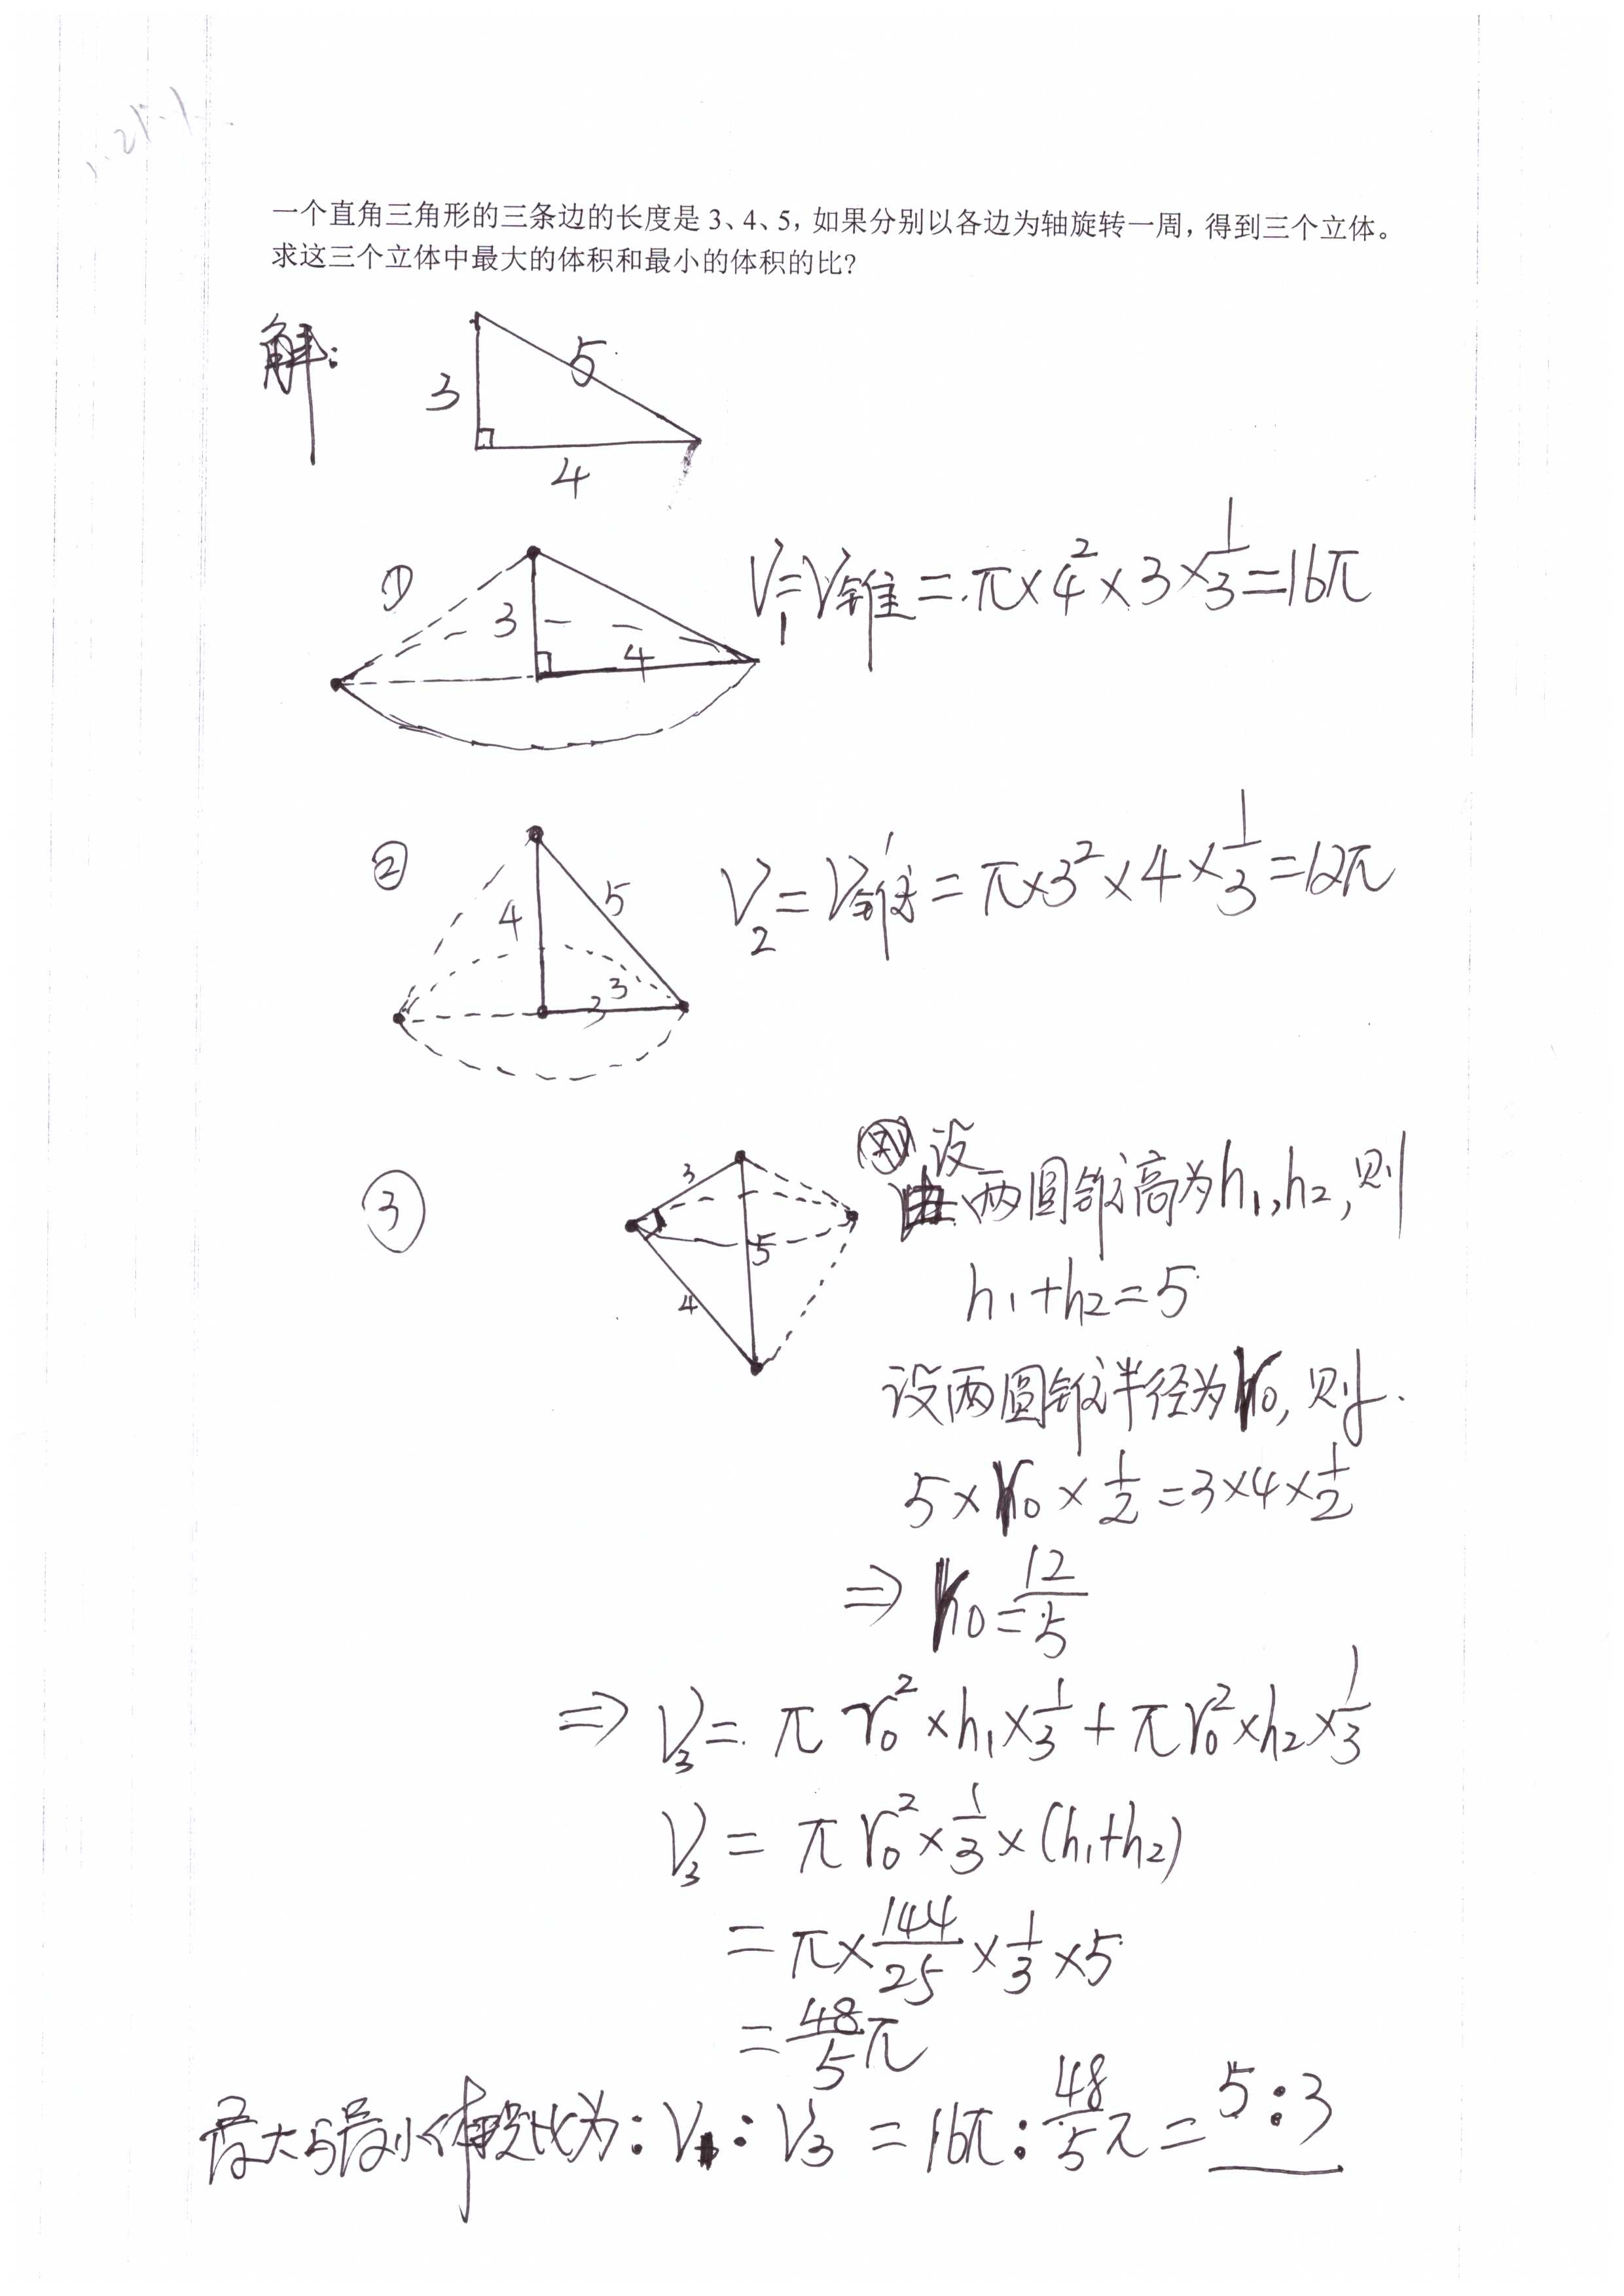 一个直角三角形的三条边的长度是 3、4、5，如果分别以各边为轴旋转一周，得到三个立体。
求这三个立体中最大的体积和最小的体积的比？
解：
3
5
4
①
3
4
V₁=V锥=π×4²×3×1/3=16π
②
4
5
3
V₂=V锥'=π×3²×4×1/3=12π
③
3
5
4
设
两圆锥高为h₁,h₂,则
h₁+h₂=5
设两圆锥半径为r₀,则
5×r₀×1/2=3×4×1/2
⇒ r₀=12/5
⇒ V₃=π r₀²×h₁×1/3+πr₀²×h₂×1/3
V₃=πr₀²×1/3×(h₁+h₂)
=π×144/25×1/3×5
=48/5π
最大与最小体积比为：V₁:V₃=16π:48/5π=5:3